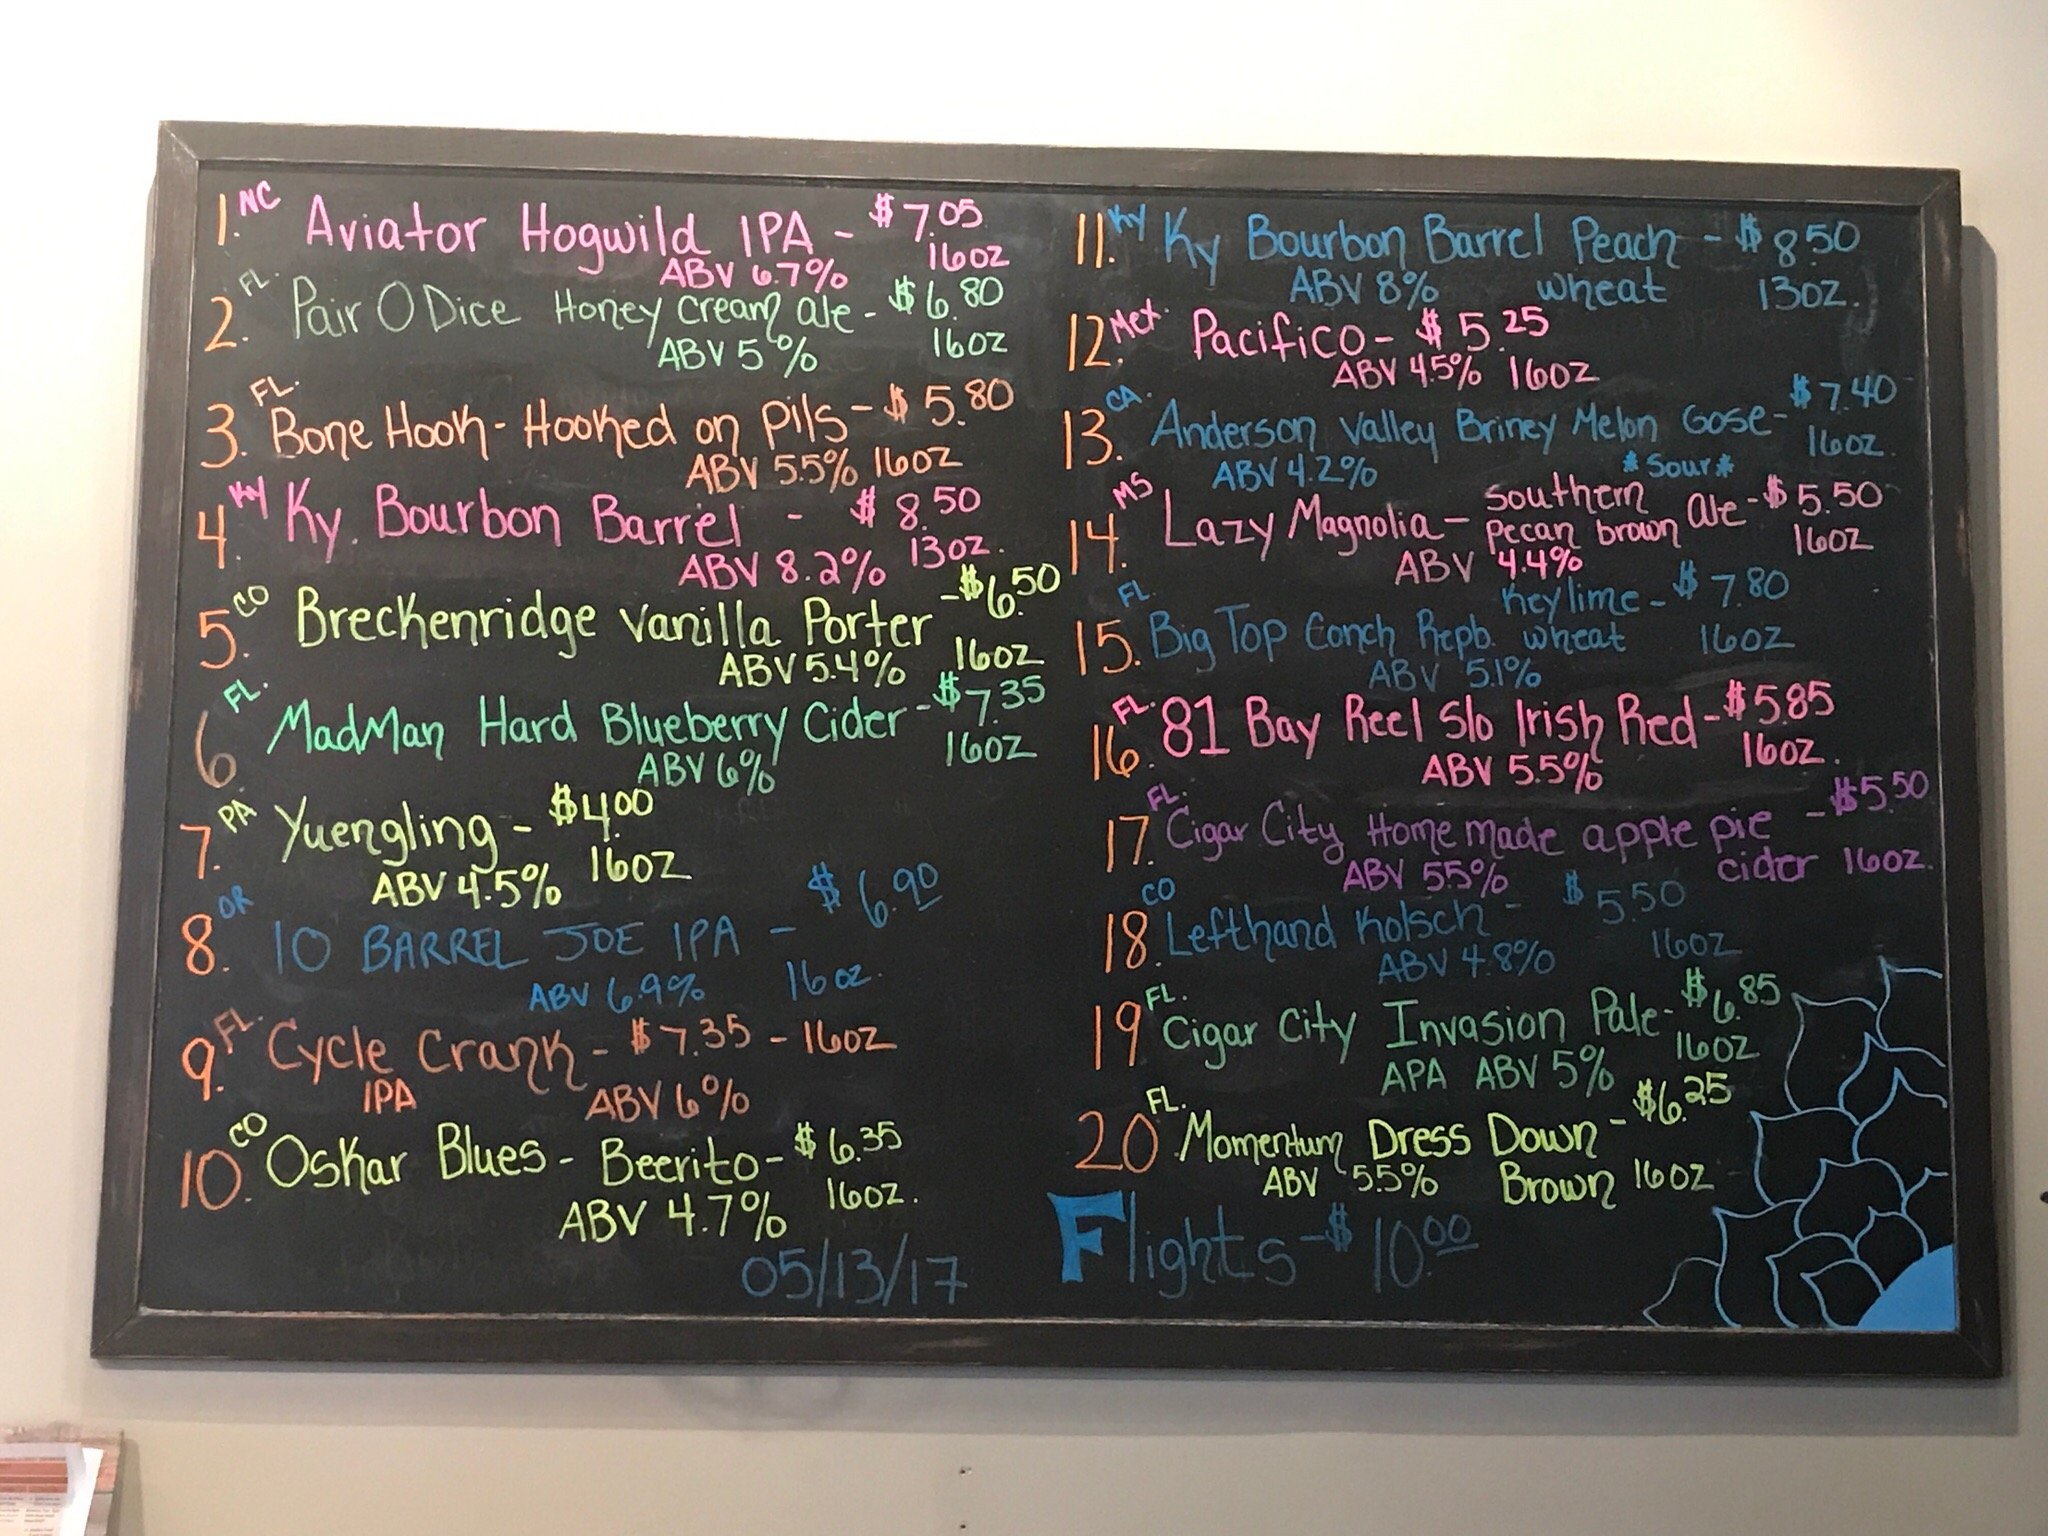 1. NC Aviator Hogwild IPA - $7.05
ABV 6.7% 16oz
2. FL Pair O Dice Honey Cream ale - $6.80
ABV 5% 16oz
3. FL. Bone Hook - Hooked on Pils - $5.80
ABV 5.5% 16oz
4. Ky Ky. Bourbon Barrel - $8.50
ABV 8.2% 13oz.
5. CO Breckenridge Vanilla Porter - $6.50
ABV 5.4% 16oz
6 FL. MadMan Hard Blueberry Cider - $7.35
ABV 6% 16oz
7. PA Yuengling - $4.00
ABV 4.5% 16oz
8. OR 10 BARREL JOE IPA - $6.90
ABV 6.9% 16oz.
9. FL. Cycle Crank - $7.35 - 16oz
IPA ABV 6%
10. CO Oskar Blues - Beerito - $6.35
ABV 4.7% 16oz.
05/13/17
11. Ky Ky Bourbon Barrel Peach - $8.50
ABV 8% wheat 13oz.
12. Mex. Pacifico - $5.25
ABV 4.5% 16oz
13. CA. Anderson Valley Briney Melon Gose - $7.40
ABV 4.2% *Sour* 16oz.
14. MS Lazy Magnolia - Southern
pecan brown Ale - $5.50
ABV 4.4% 16oz
Key lime - $7.80
15. FL. Big Top Conch Repb. wheat 16oz
ABV 5.1%
16. FL. 81 Bay Reel Slo Irish Red - $5.85
ABV 5.5% 16oz.
17. FL. Cigar City Homemade apple pie - $5.50
ABV 5.5% cider 16oz.
18. CO Lefthand Kolsch - $5.50
ABV 4.8% 16oz
19 FL. Cigar City Invasion Pale - $6.85
APA ABV 5% 16oz
20 FL. Momentum Dress Down - $6.25
ABV 5.5% Brown 16oz
Flights - $10.00